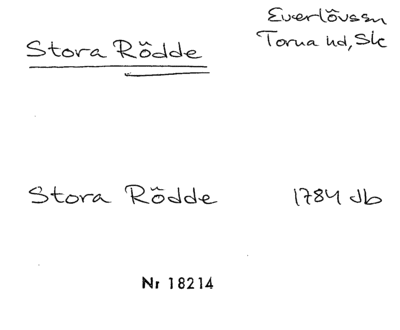 Stora Rõdde
Everlõvssn
Torna hd, Sk
Stora Rõdde
1784 Jb
Nr 18214